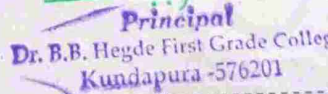 Principal
Dr. B.B. Hegde First Grade Colleg
Kundapura -576201